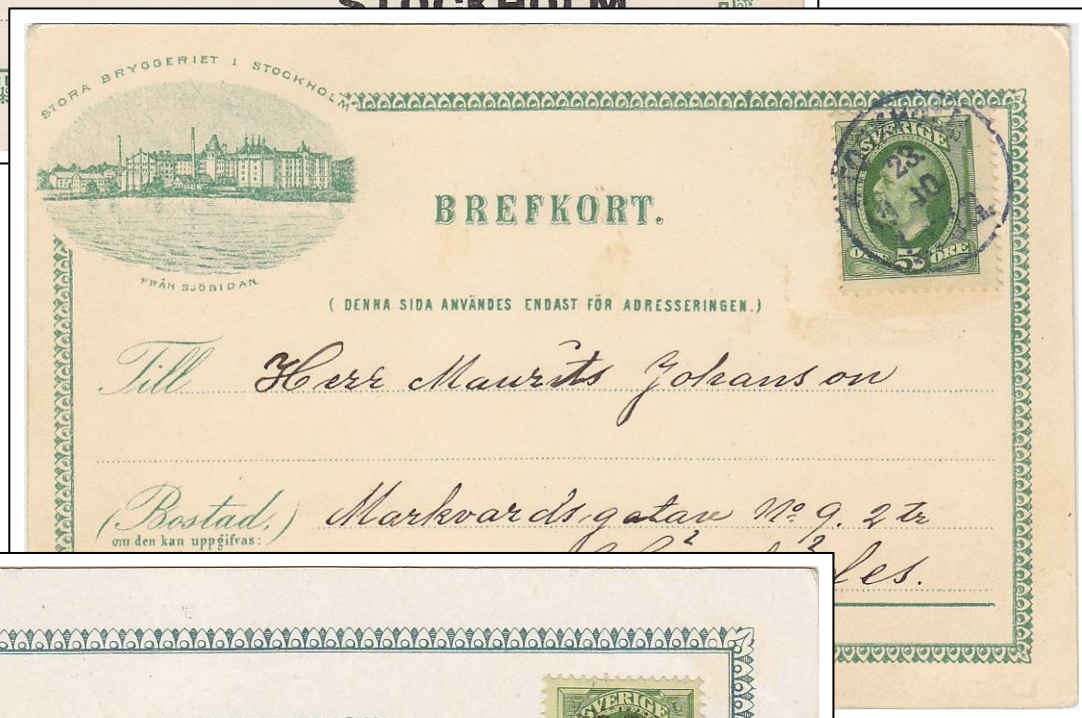 STOCKHOLM
STORA BRYGGERIET I STOCKHOLM
FRÅN SJÖSIDAN
BREFKORT.
SVERIGE
23
10
ÖRE 5 ÖRE
( DENNA SIDA ANVÄNDES ENDAST FÖR ADRESSERINGEN.)
Till Herr Maurits Johanson
(Bostad,) Markvardsgatan No 9. 2 tr
om den kan uppgifvas:
SVERIGE